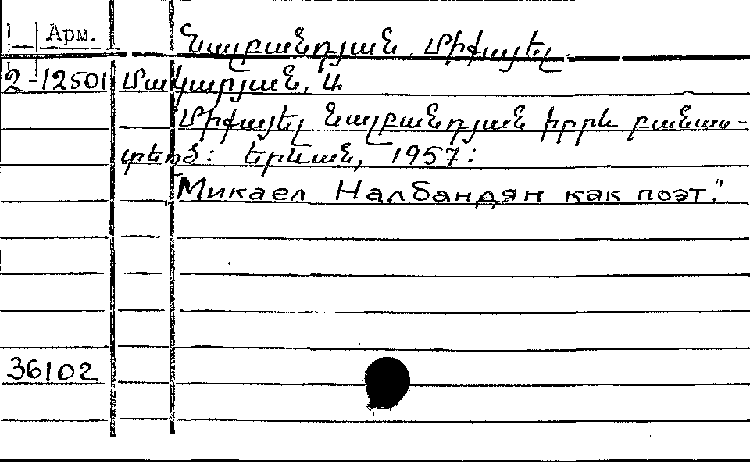 Арм.
Նալբանդյան Միքայել
2-12501 Մակարյան, Ա.
Միքայել Նալբանդյան իբրև բանաս-
տեղծ: Երևան, 1957:
"Микаел Налбандян как поэт."
36102